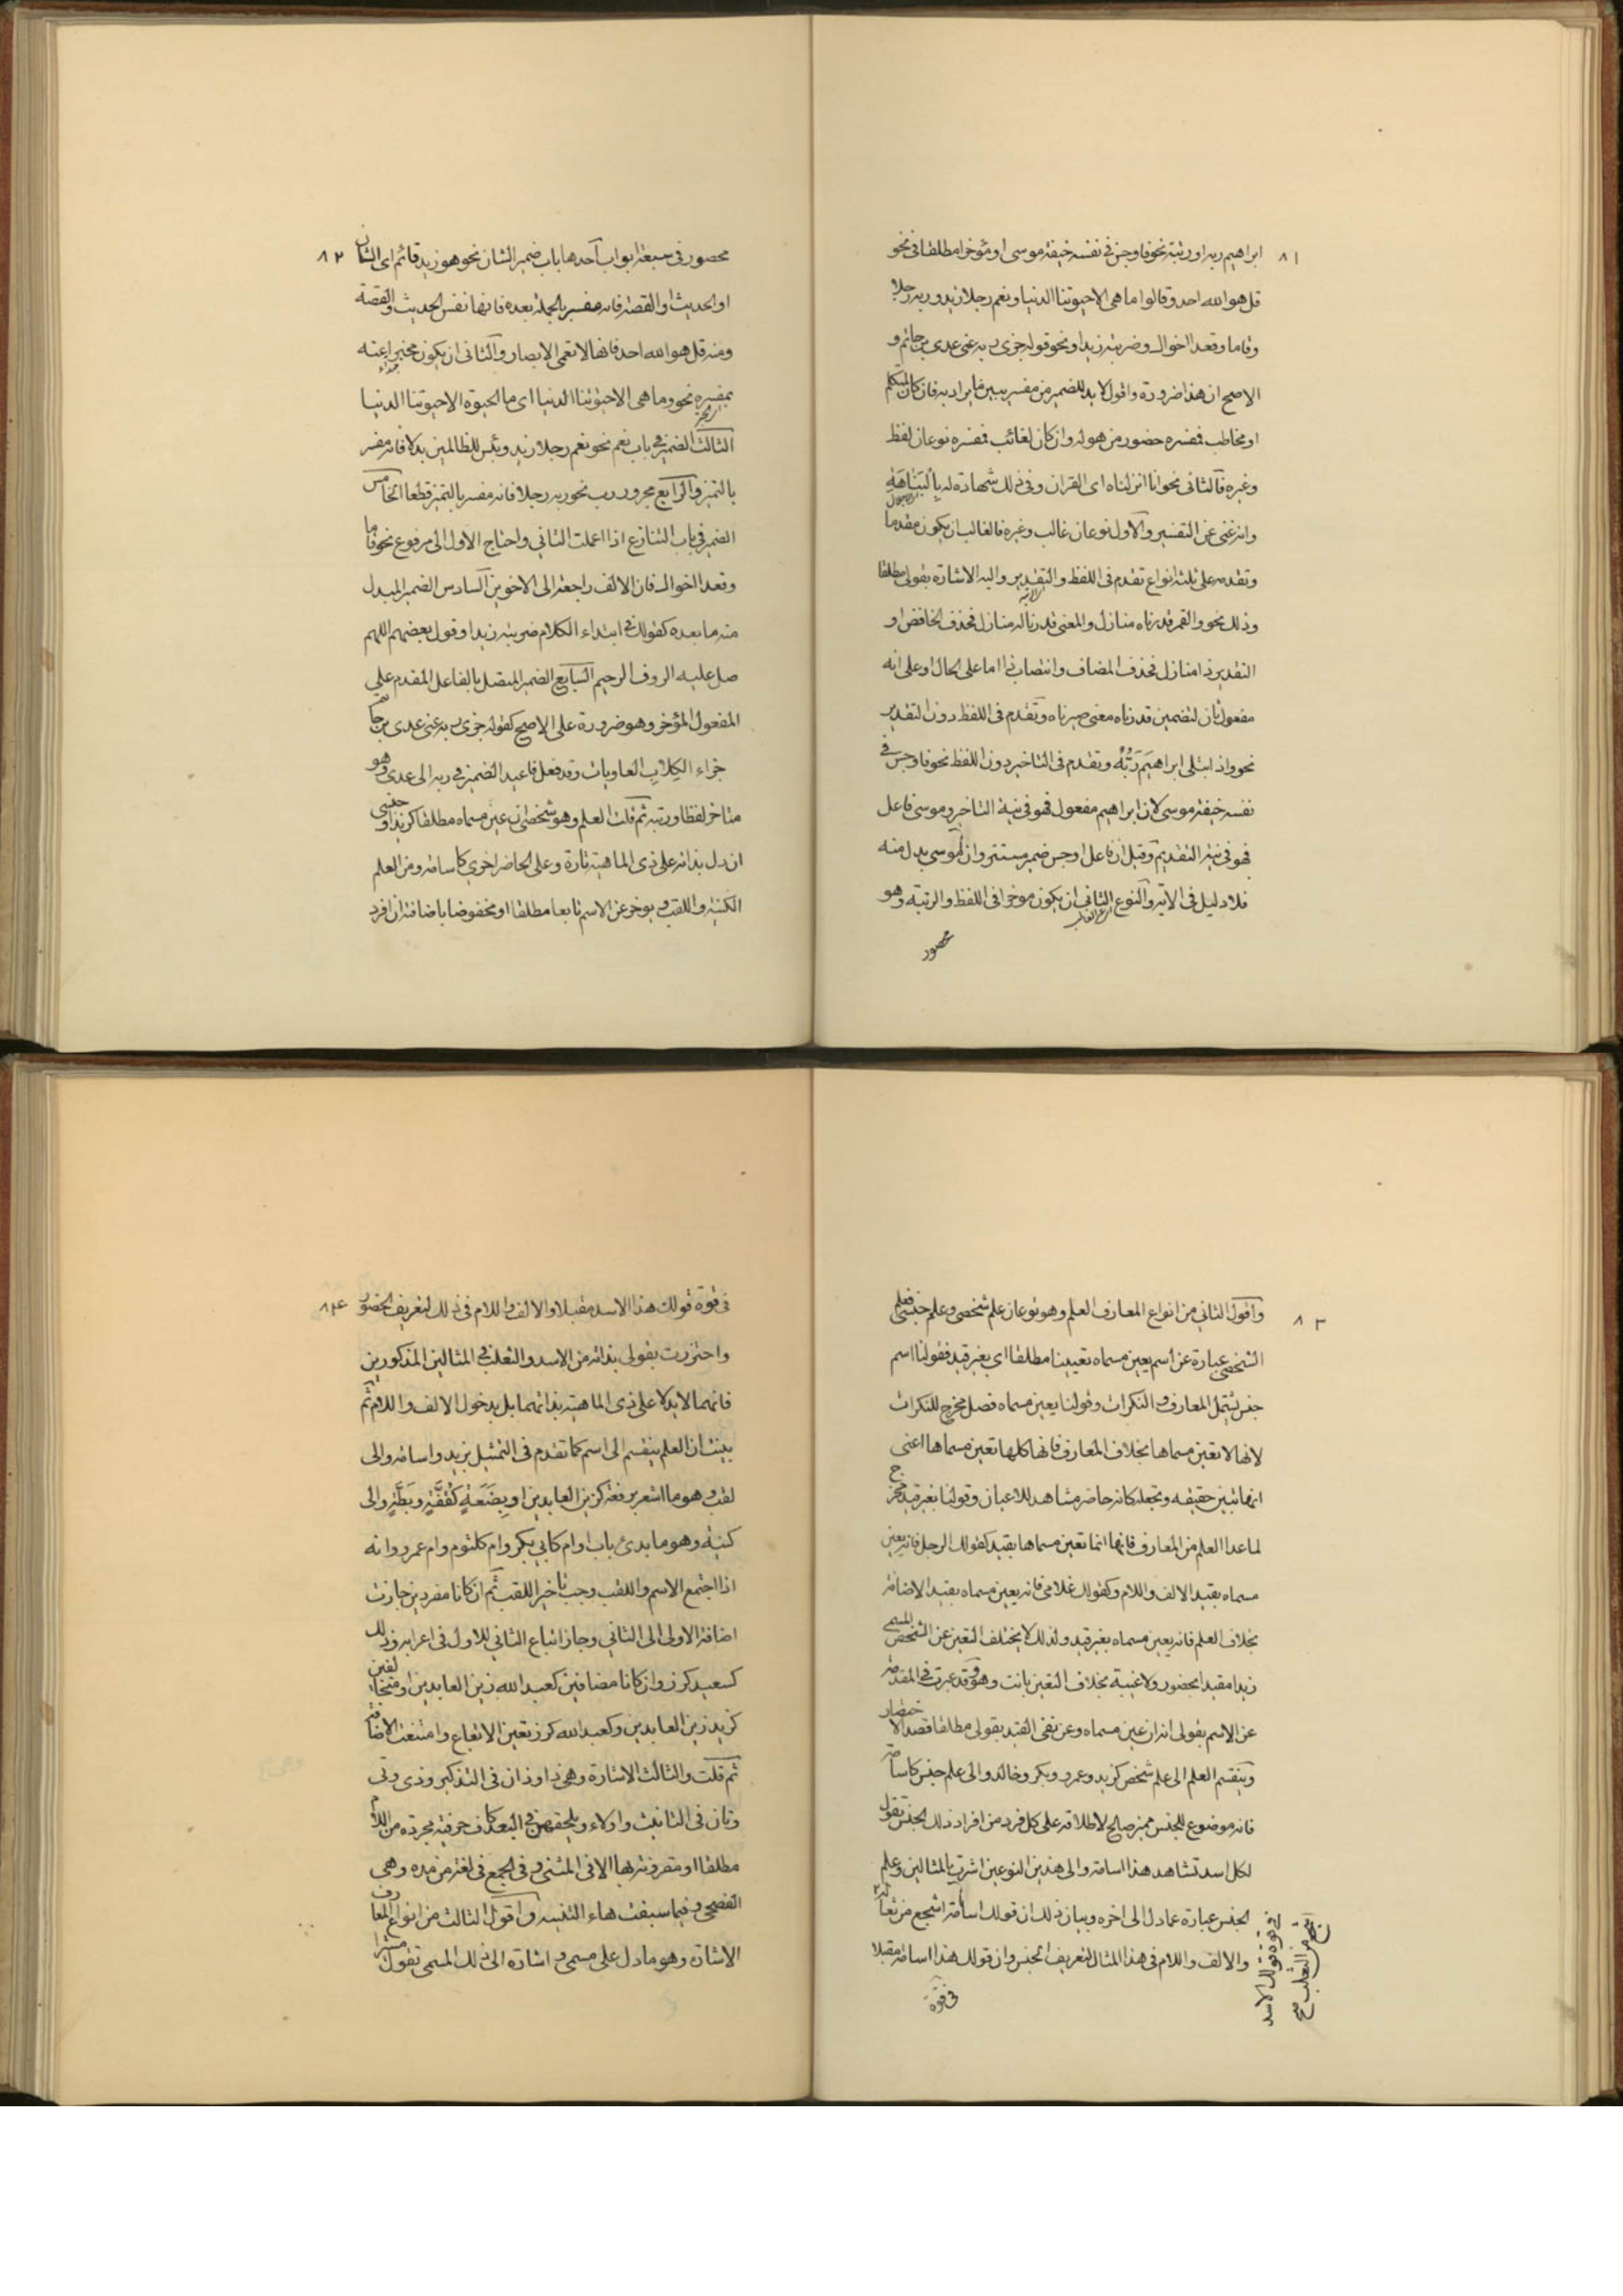 ٨١
ابراهيم ربه او رتبة نحو فاوجس في نفسه خيفة موسى او مؤخرا مطلقا في نحو
قل هو الله احد وقالوا ما هى الا حيوتنا الدنيا ونعم رجلا زيد وربه رجلا
وقاما وقعد اخواك وضربته زيدا ونحو قوله جزى ربه عني عدى بن حاتم و
الاصح ان هذا ضرورة واقول لابد للضمير من مفسر يبين ما يراد به فان كان لمتكلم
او مخاطب فمفسره حضور من هو له وان كان لغائب فمفسره نوعان لفظ
وغيره فالثانى نحو انا انزلناه اى القران وفي ذلك شهادة له بالنباهة
وانه غنى عن التفسير والاول نوعان غالب وغيره فالغالب ان يكون مقدما
وتقدمه على ثلثة انواع تقدم في اللفظ والتقدير واليه الاشارة بقولى مطلقا
وذلك نحو والقمر قدرناه منازل والمعنى قدرنا له منازل فحذف الخافض او
التقدير ذا منازل فحذف المضاف وانتصاب ذا اما على الحال او على انه
مفعول ثان لتضمين قدرناه معنى صيرناه وتقدم في اللفظ دون التقدير
نحو واذ ابتلى ابراهيم ربه وتقدم في التاخير دون اللفظ نحو فاوجس في
نفسه خيفة موسى لان ابراهيم مفعول فهو في نية التاخير وموسى فاعل
فهو في نية التقديم وقيل ان فاعل اوجس ضمير مستتر وان موسى بدل منه
فلا دليل في الاية والنوع الثانى ان يكون موخرا في اللفظ والرتبة وهو
محصور
٨٢
محصور في سبعة ابواب احدها باب ضمير الشان نحو هو زيد قائم اى الشان
او الحديث او القصة فانه مفسر بالجملة بعده فانها نفس الحديث والقصة
ومنه قل هو الله احد فانها لا تعمى الابصار والثانى ان يكون مخبرا عنه
بمفسره نحو وما هى الا حيوتنا الدنيا اى ما الحيوة الا حيوتنا الدنيا
الثالث الضمير في باب نعم نحو نعم رجلا زيد وبئس للظالمين بدلا فانه مفسر
بالتميز والرابع مجرور رب نحو ربه رجلا فانه مفسر بالتميز قطعا الخامس
الضمير في باب التنازع اذا اعملت الثاني واحتاج الاول الى مرفوع نحو قاما
وقعد اخواك فان الالف راجعة الى الاخوين السادس الضمير المبدل
منه ما بعده كقولك في ابتداء الكلام ضربته زيدا وقول بعضهم اللهم
صل عليه الروف الرحيم السابع الضمير المتصل بالفاعل المقدم على
المفعول المؤخر وهو ضرورة على الاصح كقوله جزى ربه عنى عدى بن حاتم
جزاء الكلاب العاويات وقد فعل فاعيد الضمير في ربه الى عدى وهو
متاخر لفظا ورتبة ثم قلت العلم وهو شخصى ان عين مسماه مطلقا كزيد او جنسى
ان دل بذاته على ذى الماهية تارة وعلى الحاضر اخرى كاسامة ومن العلم
الكنية واللقب ويوخر عن الاسم تابعا مطلقا او مخفوضا باضافته ان افرد
٨٣
واقول الثاني من انواع المعارف العلم وهو نوعان علم شخصى وعلم جنسى فعلم
الشخصى عبارة عن اسم يعين مسماه تعيينا مطلقا اى بغير قيد فقولنا اسم
جنس يشمل المعارف والنكرات وقولنا يعين مسماه فصل مخرج للنكرات
لانها لا تعين مسماها بخلاف المعارف فانها كلها تعين مسماها اعنى
انها تبين حقيقه وتجعله كانه حاضر مشاهد للاعيان وقولنا بغير قيد مخرج
لما عدا العلم من المعارف فانها انما تعين مسماها بقيد كقولك الرجل فانه يعين
مسماه بقيد الالف واللام وكقولك غلامى فانه يعين مسماه بقيد الاضافة
بخلاف العلم فانه يعين مسماه بغير قيد ولذلك لا يختلف التعين عن الشخص المسمى
زيدا مقيدا بحضور ولا غيبة بخلاف التعين بانت وهو وقد عبرت في المقدمة
عن الاسم بقولى ان عين مسماه وعن نفى القيد بقولى مطلقا قصدا للاختصار
وينقسم العلم الى علم شخص كزيد وعمرو وبكر وخالد والى علم جنس كاسامة
فانه موضوع للجنس مميز صالح لاطلاقه على كل فرد من افراد ذلك الجنس تقول
لكل اسد تشاهد هذا اسامة والى هذين النوعين اشرت بالمثالين وعلم
الجنس عبارة عما دل الى اخره وبيان ذلك ان قولك اسامة اشجع من ثعالة
والالف واللام في هذا المثال لتعريف الجنس وان قولك هذا اسامة مقبلا
في قوة قولك الاسد
اشجع من الثعلب صح
في قوة
٨٤
في قوة قولك هذا الاسد مقبلا والالف واللام في ذلك لتعريف الحضور
واحترزت بقولى بذاته من الاسد والثعلب في المثالين المذكورين
فانهما لا يدلا على ذى الماهية بذاتهما بل بدخول الالف واللام ثم
بينت ان العلم ينقسم الى اسم كما تقدم في التمثيل بزيد واسامة والى
لقب وهو ما اشعر برفعة كزين العابدين او بضعة كقفة وبطة والى
كنية وهو ما بدئ باب او ام كابى بكر وام كلثوم وام عمرو وانه
اذا اجتمع الاسم واللقب وجب تاخير اللقب ثم ان كانا مفردين جازت
اضافة الاولى الى الثاني وجاز اتباع الثاني للاول في اعرابه وذلك
كسعيد كرز وان كانا مضافين كعبد الله زين العابدين او متخالفين
كزيد زين العابدين وكعبد الله كرز تعين الاتباع وامتنعت الاضافة
ثم قلت والثالث الاشارة وهى ذا وذان في التذكير وذى وتى
وتان في التانيث واولاء ويلحقهن في البعد كاف حرفية مجردة من اللام
مطلقا او مقرونة بها الا في المثنى وفي الجمع في لغة من مده وهى
الفصحى وفيما سبقت هاء التنبيه واقول الثالث من انواع المعارف
الاشارة وهو ما دل على مسمى واشارة الى ذلك المسمى تقول مشيرا